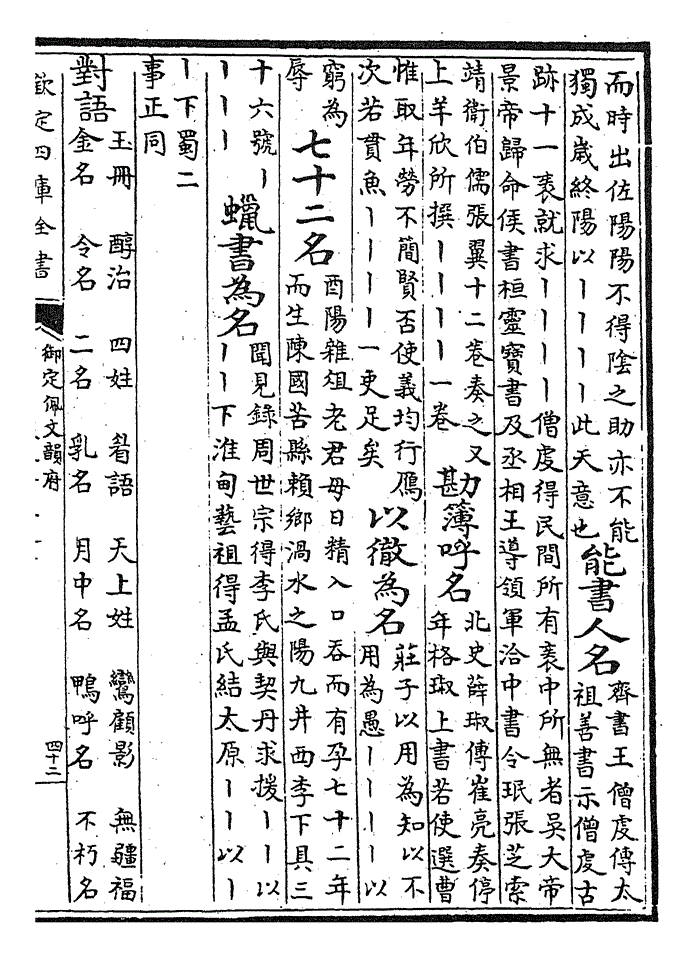 而時出佐陽陽不得陰之助亦不能
獨成歲終陽以丨丨丨丨此天意也
能書人名
齊書王僧虔傳太
祖善書示僧虔古
跡十一袠就求丨丨丨丨僧虔得民間所有袠中所無者吳大帝
景帝歸命侯書桓靈寶書及丞相王導領軍洽中書令珉張芝索
靖衛伯儒張翼十二卷奏之又
上羊欣所撰丨丨丨丨一卷
勘簿呼名
北史薛琡傳崔亮奏停
年格琡上書若使選曹
惟取年勞不簡賢否使義均行鴈
次若貫魚丨丨丨丨一吏足矣
以徹為名
莊子以用為知以不
用為愚丨丨丨丨以
窮為
辱
七十二名
酉陽雜俎老君母曰精入口吞而有孕七十二年
而生陳國苦縣賴鄉渦水之陽九井西李下具三
十六號丨
丨丨丨
蠟書為名
聞見錄周世宗得李氏與契丹求援丨丨以
丨丨下淮甸藝祖得孟氏結太原丨丨以丨
丨下蜀二
事正同
對語
玉冊 醇治 四姓 眘語 天上姓 鸞顧影 無疆福
金名 令名 二名 乳名 月中名 鴨呼名 不朽名
欽定四庫全書
御定佩文韻府
四十二